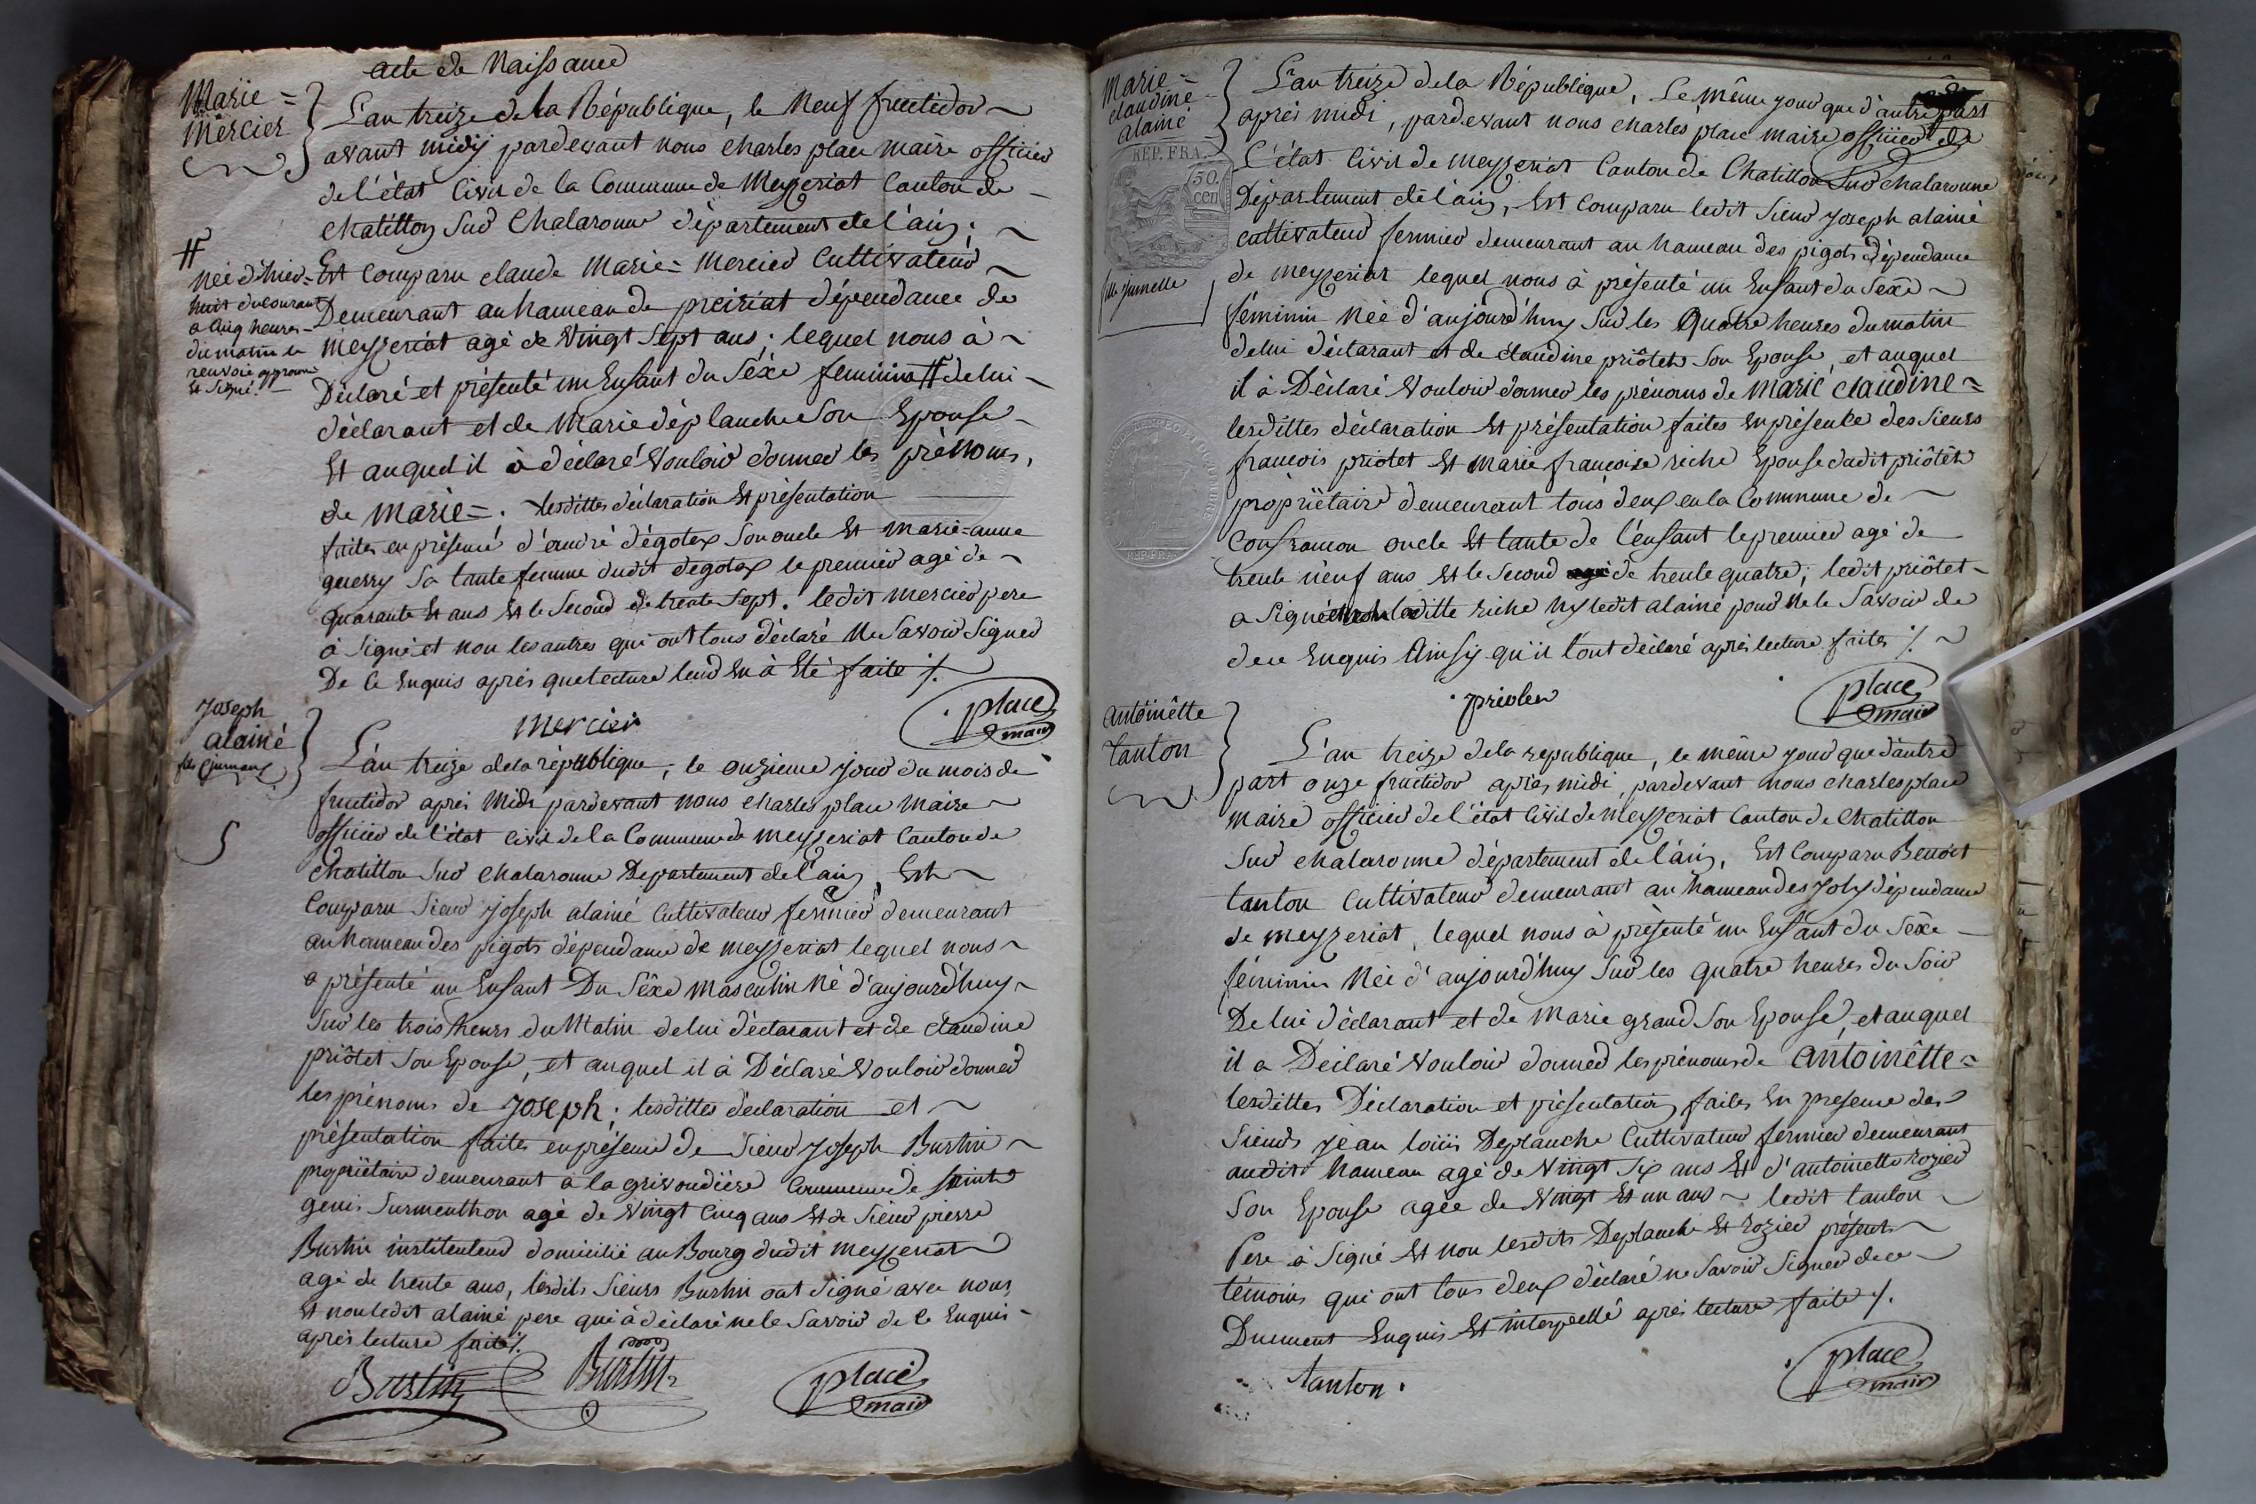 acte de Naissance
Marie =
Mercier
L'an treize de la République, le Neuf fructidor
avant midy pardevant nous charles place maire officier
de l'état Civil de la Commune de Meyzeriat Canton de
chatillon Sur Chalaronne département de l'ain;
Est Comparu claude Marie = Mercier Cultivateur
Demeurant au hameau de preiriat dépendance de
meyzeriat agé de Vingt Sept ans; lequel nous à
Déclaré et présenté un Enfant du Séxe feminin # de lui
déclarant et de Marie déplanche Son Epouse
Et auquel il à déclaré Vouloir donner les prénoms,
de Marie =. lesdittes déclaration Et présentation
faites en présence d'andré dégotex Son oncle Et marie = anne
guerry Sa tante femme dudit degotex le premier agé de
quarante Et ans Et le Second de trente Sept. ledit mercier pere
à Signé et non les autres qui ont tous déclaré Ne Savoir Signer
De Ce Enquis après que lecture leur En à Eté faite ⁒
#
Née d'hier
huit du courant
a cinq heures
du matin le
renvoie approuvé
Et Signé.
mercier
place
maire
Joseph
alainé
fils jumeau
L'an treize de la république, le onzieme jour du mois de
fructidor après Midi pardevant nous charles place Maire
officier de l'état Civil de la Commune de meyzeriat Canton de
chatillon Sur chalaronne Département de l'ain, Est
Comparu Sieur Joseph alainé Cultivateur fermier demeurant
au hameau des pigots dépendance de meyzeriat lequel nous
a présenté un Enfant Du Séxe masculin Né d'aujourd'huy
Sur les trois heures du Matin de lui déclarant et de claudine
priôtet Son Epouse, et auquel il à Déclaré Vouloir donner
les prénoms de Joseph; lesdittes déclaration et
présentation faites en présence de Sieur Joseph Burtin
propriétaire demeurant a la grivoudière Commune de Sainte
genis Surmenthon agé de Vingt Cinq ans Et de Sieur pierre
Burtin instituteur domicilié au Bourg dudit meyzeriat
agé de trente ans, lesdits Sieurs Burtin ont Signé avec nous
Et non ledit alainé pere qui à déclaré ne le Savoir de Ce Enquis
après lecture faite ⁒
Burtin
Burtin
place
maire
Marie =
claudine
alainé
REP. FRA.
50.
cen
fille jumelle
L'an treize de la République, Le même jour que d'autre part
après midi, pardevant nous charles place maire officier de
l'état Civil de meyzeriat Canton de Chatillon Sur chalaronne
Département de l'ain, Est Comparu ledit Sieur Joseph alainé
cultivateur fermier demeurant au hameau des pigots dépendance
de meyzeriat lequel nous à présenté un Enfant du Séxe
féminin Née d'aujourd'huy Sur les Quatre heures du matin
de lui déclarant et de claudine priôtet Son Epouse, et auquel
il à Déclaré Vouloir donner les prénoms de Marie claudine =
lesdittes déclaration Et présentation faites en présence des Sieurs
francois priotet Et marie françoise riche Epouse dudit priôtet
propriétaire demeurant tous deux en la Commune de
Confrancon oncle Et tante de l'enfant le premier agé de
trente neuf ans Et le Second de trente quatre; ledit priôtet
a Signé laditte riche Ny ledit alainé pour Ne le Savoir de
de ce Enquis Ainsy qu'il l'ont déclaré après lecture faite ⁒
place
maire
antoinêtte
tanton
L'an treize de la republique, le même jour que d'autre
part onze fructidor après midi, pardevant nous charles place
maire officier de l'état Civil de Meyzeriat Canton de Chatillon
Sur chalaronne département de l'ain, Est Comparu Benoit
tanton Cultivateur demeurant au hameau des Joly dépendance
de meyzeriat, lequel nous à présenté un Enfant du Séxe
féminin Née d'aujourd'huy Sur les quatre heures du Soir
De lui déclarant et de Marie grand Son Epouse, et auquel
il a Déclaré Vouloir donner les prénoms de Antoinêtte =
lesdittes Déclaration et présentation faites En presence des
Sieurs jean loüis Deplanche Cultivateur fermier demeurant
audit hameau agé de Vingt Six ans Et d'antoinette rozier
Son Epouse agée de Vingt Et un ans ledit tanton
Pere à Signé Et non lesdits Deplanche Et rozier présents
témoins qui ont tous deux déclaré ne Savoir Signer de ce
Duement Enquis Et interpellé après lecture faite ⁒.
tanton.
place
maire